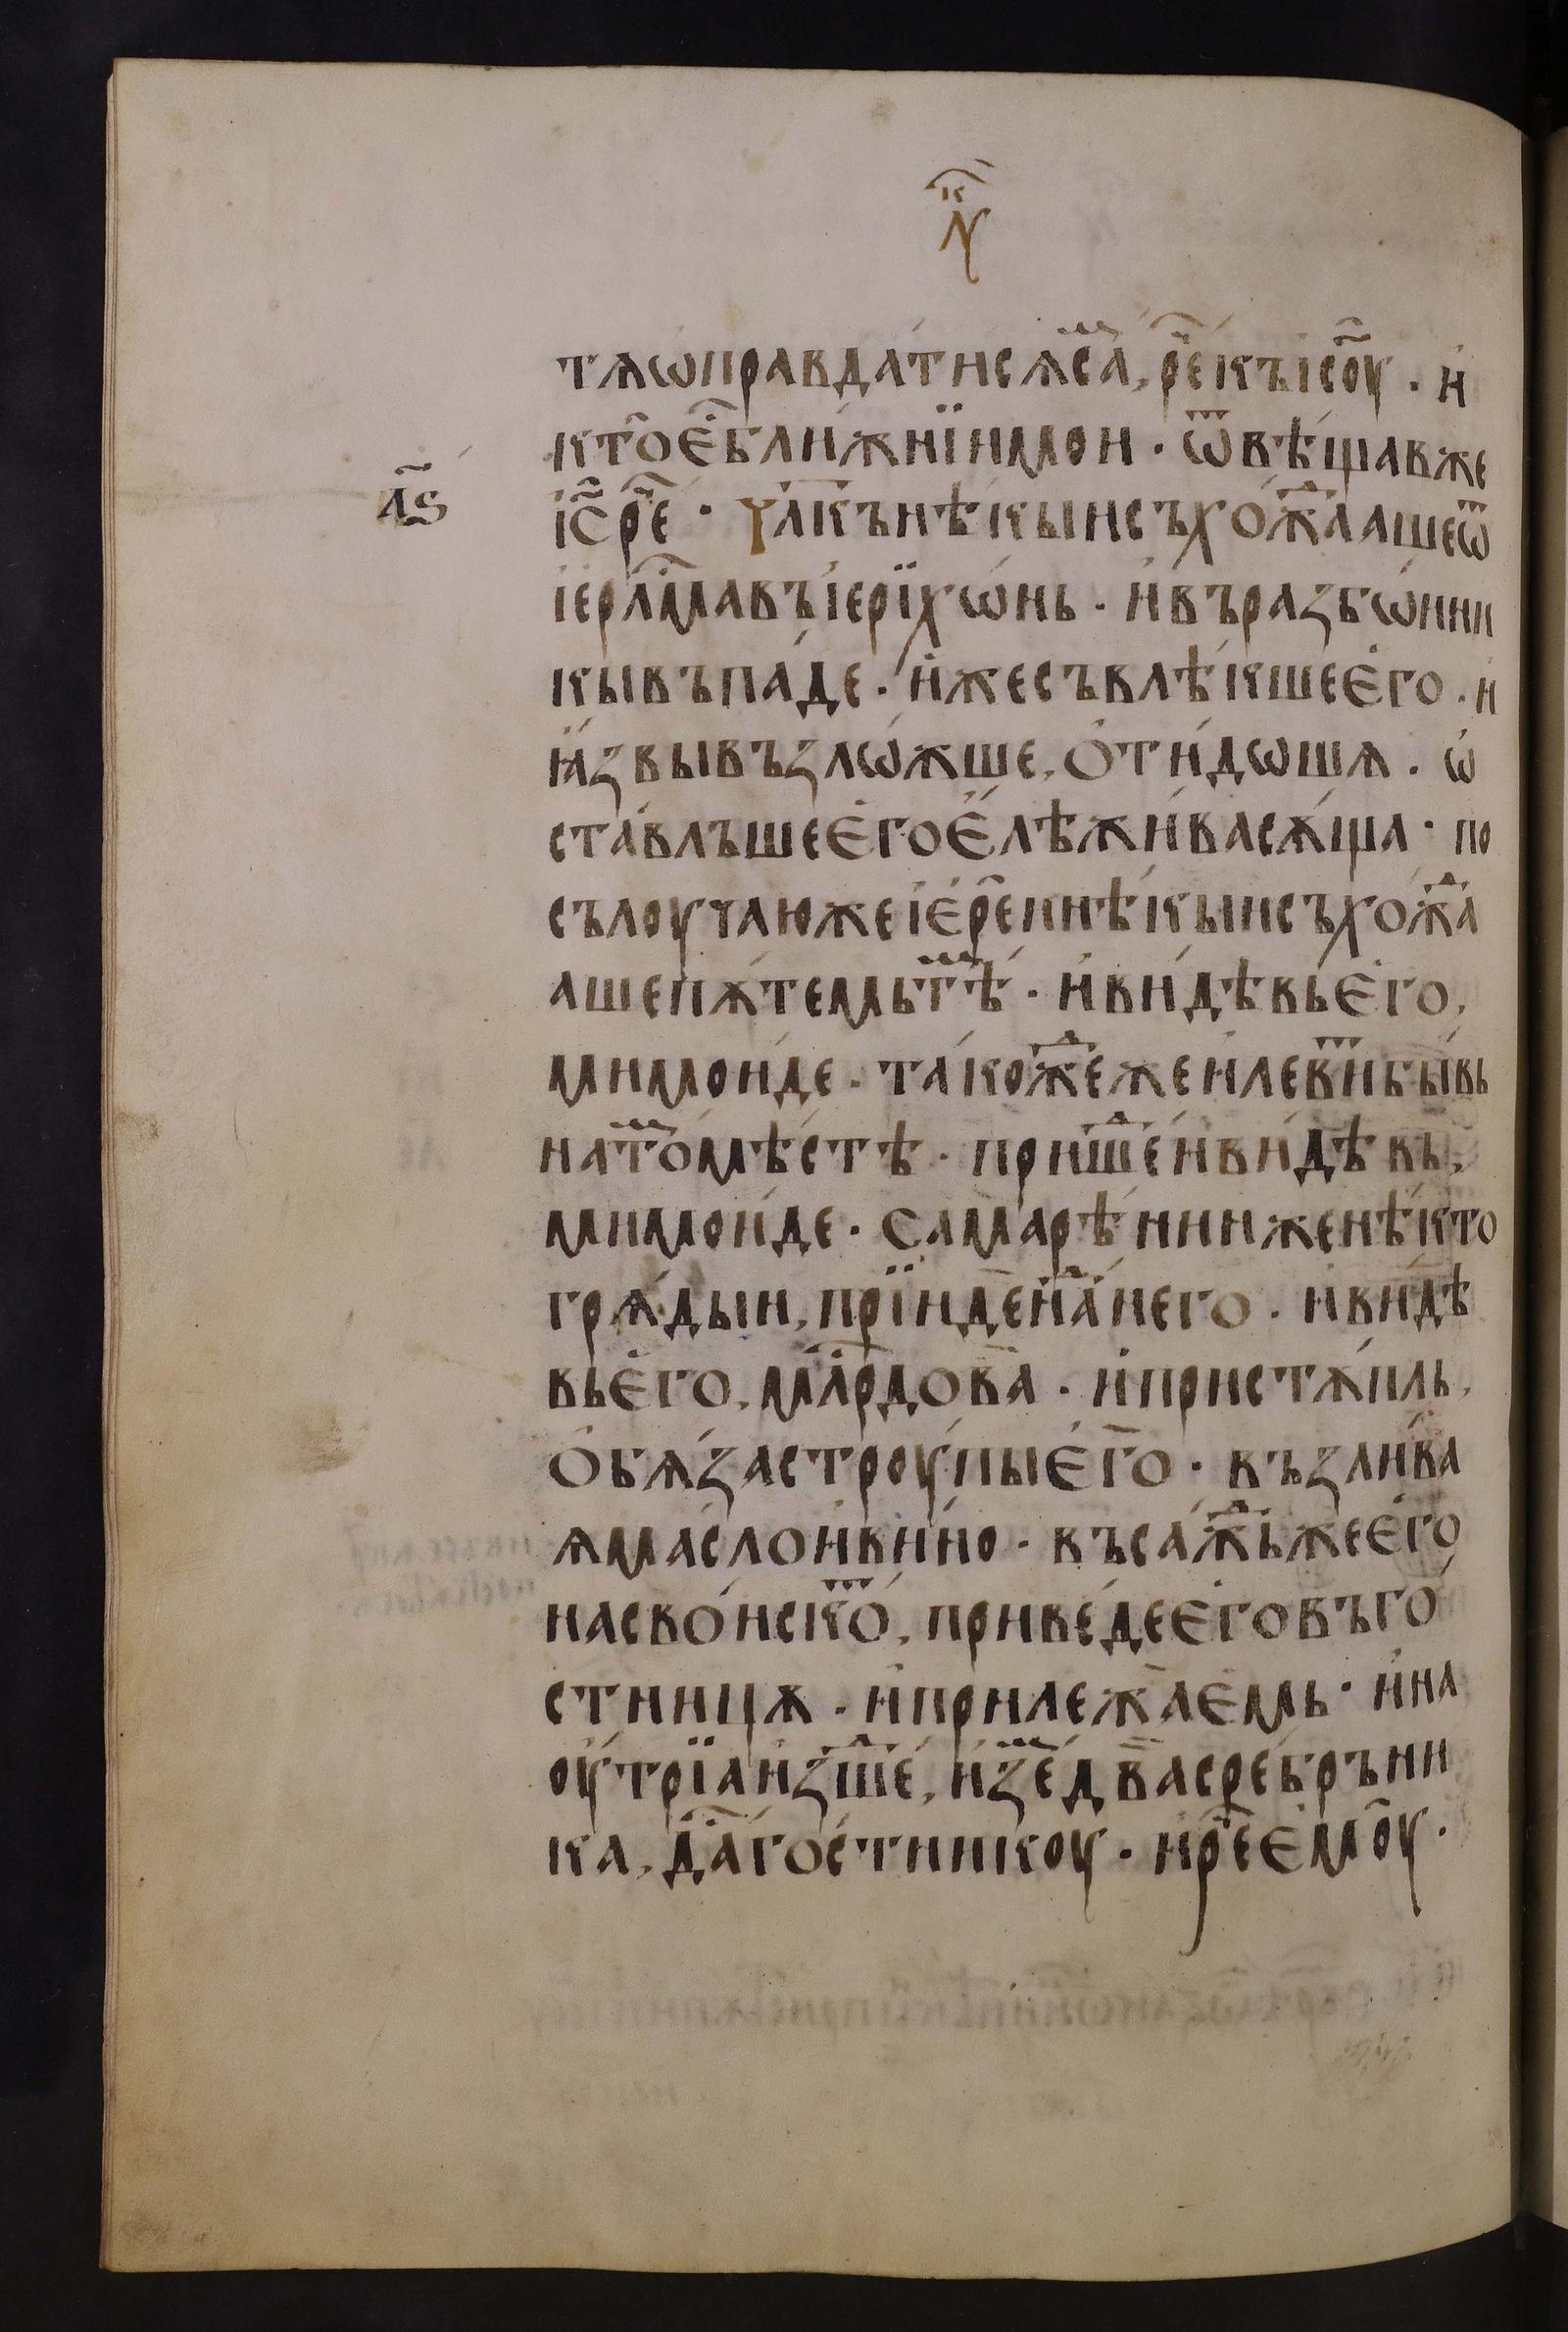 лк҃
тѧѡправдатисѧса, рече къ і҃соу · и
кто е҆ бли́жнїи мои · ѿвѣщав же
л҃ѕ
і҃с ре҃ · ч҃лкъ нѣкыи съхож҃дааше ѿ
іер҃лма въ іерїхѡ́нь · и въ разбѡини
кы въпа́де · иже съвлѣкше е҆го · и
ꙗзвы възлѡ́жше, ѻти́дѡшѧ · ѡ
ста́влъше е҆го е҆лѣ жи́ва сѫ́ща · по
сълоучаю же іе҆ре́и нѣкыи съхож҃да
аше пѫте́мь тѣ҃м · и ви́дѣвь е҆го,
мимои́де · та́кож҃де же и леѵ҃ги бы́вь
на то҃м мѣ́стѣ · приш҃е и ви́дѣвь,
мимои́де · самарѣ́нин же нѣкто
грѧ́дыи, прїиде на҃д него · и ви́дѣ
вь е҆го, м҃лрдова · и присту́пль,
ѻбѧ́за строу́пы е҆го · възли́ва
ѧ ма́сло и ви́но · въсаж҃дь же е҆го
на сво́и ско҃т, приве́де е҆го въ го
стиницѫ · и прилежа е҆мь · и на
оутрїа из҃ше, изе҃м два сре́бръни
ка, да҃ го́стиникоу · и ре҃ е҆моу ·